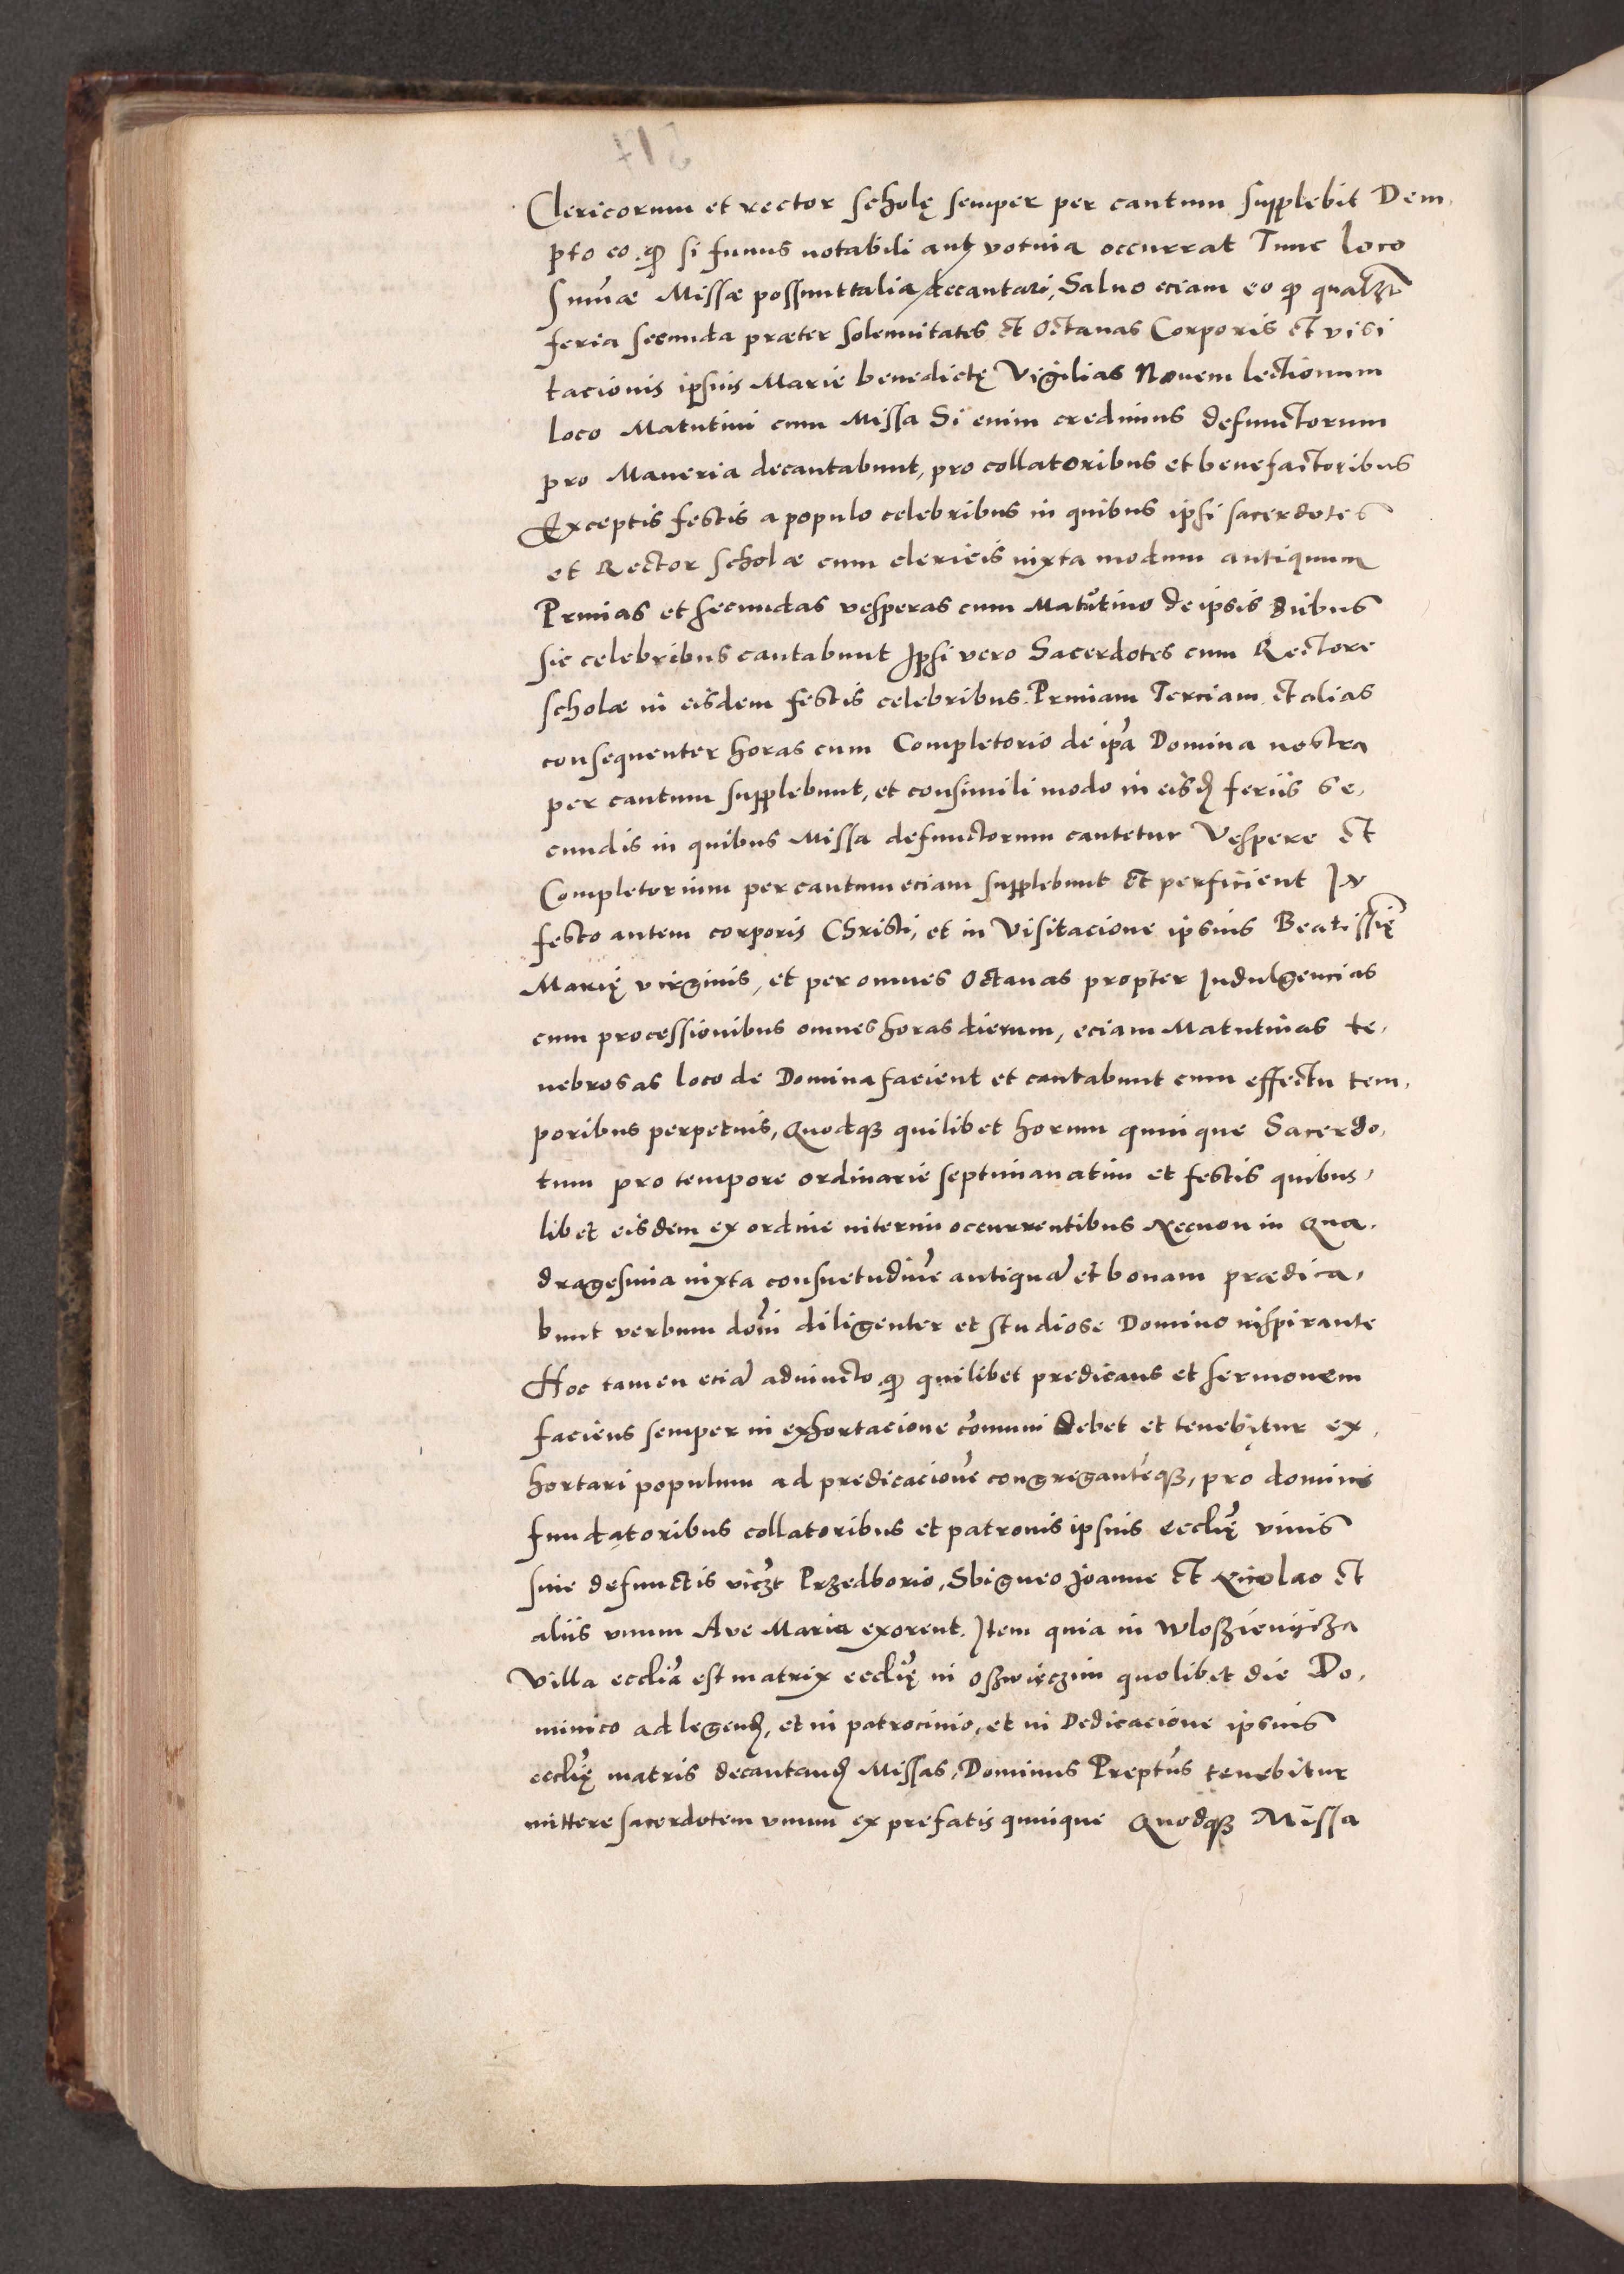 Clericorum et rector scholę semper per cantum supplebit Dem,
pto eo. ꝙ si funus notabili aut votiua occurrat Tunc loco
Sum̃æ Missæ possunt talia decantari, Saluo eciam eo ꝙ qualʒt
feria secunda præter solennitates et Octauas Corporis et visi
tacionis ipsius Marie benedictę Vigilias Nouem lectionum
loco Matutini cum Missa Si enim credimus defunctorum
pro Maneria decantabunt, pro collatoribus et benefactoribus
Exceptis festis a populo celebribus in quibus ipsi sacerdotes
et Rector scholæ cum clericis iuxta modum antiquum
Primas et secundas vesperas cum Matutino de ipsis diebus
sic celebribus cantabunt Ipsi vero Sacerdotes cum Rectore
scholæ in eisdem festis celebribus. Primam Terciam et alias
consequenter horas cum Completorio de ip̃a Domina nostra
per cantum supplebunt, et consimili modo in eisđ feriis se,
cundis in quibus Missa defunctorum cantetur Vespere et
Completorium per cantum eciam supplebunt et perficient In
festo autem corporis Christi, et in Visitacione ipsius Beatissię̃
Marię virginis, et per omnes Octauas propter Indulgencias
cum processionibus omnes horas dierum, eciam Matutinas te,
nebrosas loco de Domina facient et cantabunt cum effectu tem,
poribus perpetuis, Quodqꝫ quilibet horum quinque Sacerdo,
tum pro tempore ordinarie septimanatim et festis quibus,
libet eisdem ex ordine interim occurrentibus Necnon in Qua,
dragesima iuxta consuetudinẽ antiquã et bonam prædica,
bunt verbum dom̃i diligenter et studiose Domino inspirante
Hoc tamen eciã adiuncto ꝙ quilibet predicans et sermonem
faciens semper in exhortacione com̃uni debet et tenebitur ex,
hortari populum ad predicacionẽ congregantẽqꝫ, pro dominis
fundatoribus collatoribus et patronis ipsius eccl̃ię viuis
siue defunctis viczt Przedborio, Sbigneo Joanne et Nicolao et
aliis vnum Ave Maria exorent. Item quia in Wloszienijcza
Villa eccl̃ia est matrix eccl̃ię in Oszwieczim quolibet die Do,
minico ad legenđ, et in patrocinio, et in Dedicacione ipsius
eccl̃ię matris decantanđ Missas, Dominus Prept̃us tenebitur
mittere sacerdotem vnum ex prefatis quinque Quodqꝫ Missa